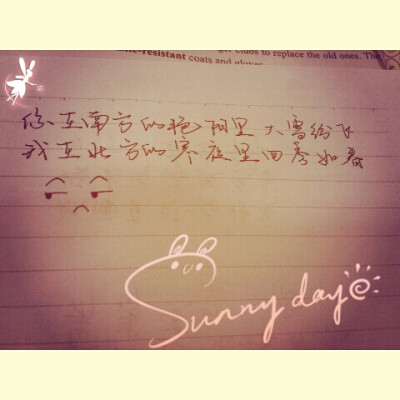 clubs to replace the old ones. The
-resistant coats and
你在南方的艳阳里 大雪纷飞
我在北方的寒夜里四季如春
Sunny day